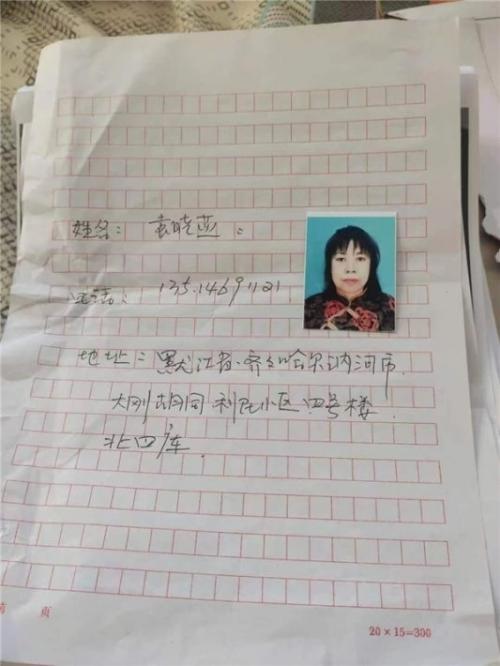 姓名： 袁晓燕：
电话： 13514691121
地址： 黑龙江省.齐齐哈尔讷河市.
大刚胡同.利民小区四号楼.
北四库.
页
20×15=300